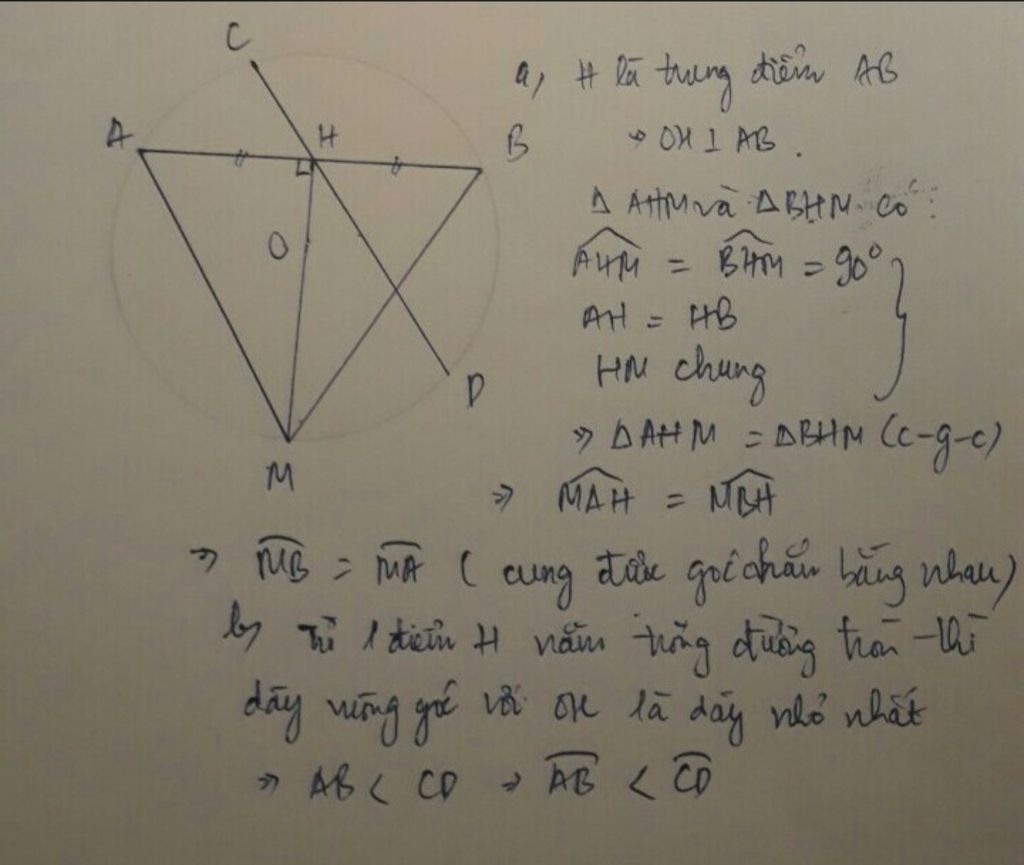 C
A
H
B
O
D
M
a, H là trung điểm AB
⇒ OH ⊥ AB.
Δ AHM và ΔBHM có:
AHM = BHM = 90°
AH = HB
HM chung
⇒ ΔAHM = ΔBHM (c-g-c)
⇒ MAH = MBH
⇒ MB = MA (cung được góc chắn bằng nhau)
b, Từ 1 điểm H nằm trong đường tròn thì
dây vuông góc với OH là dây nhỏ nhất
⇒ AB < CD ⇒ AB < CD